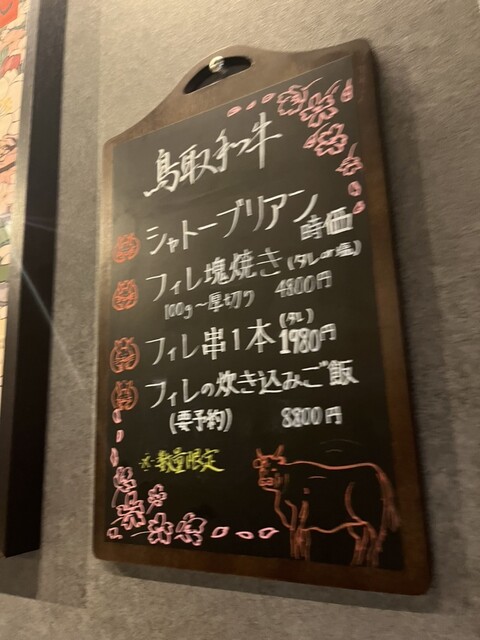 鳥取和牛
シャトーブリアン 時価
フィレ塊焼き(タレor塩)
100g〜厚切り 4800円
フィレ串1本(タレ)1980円
フィレの炊き込みご飯
(要予約) 8800円
※数量限定